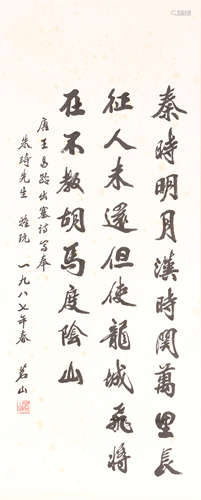 秦時明月漢時関萬里長
征人未還但使龍城飛將
在不教胡馬度陰山
唐王昌齡出塞詩寫奉
朱先生 雅玩 一九八七年春 茗山